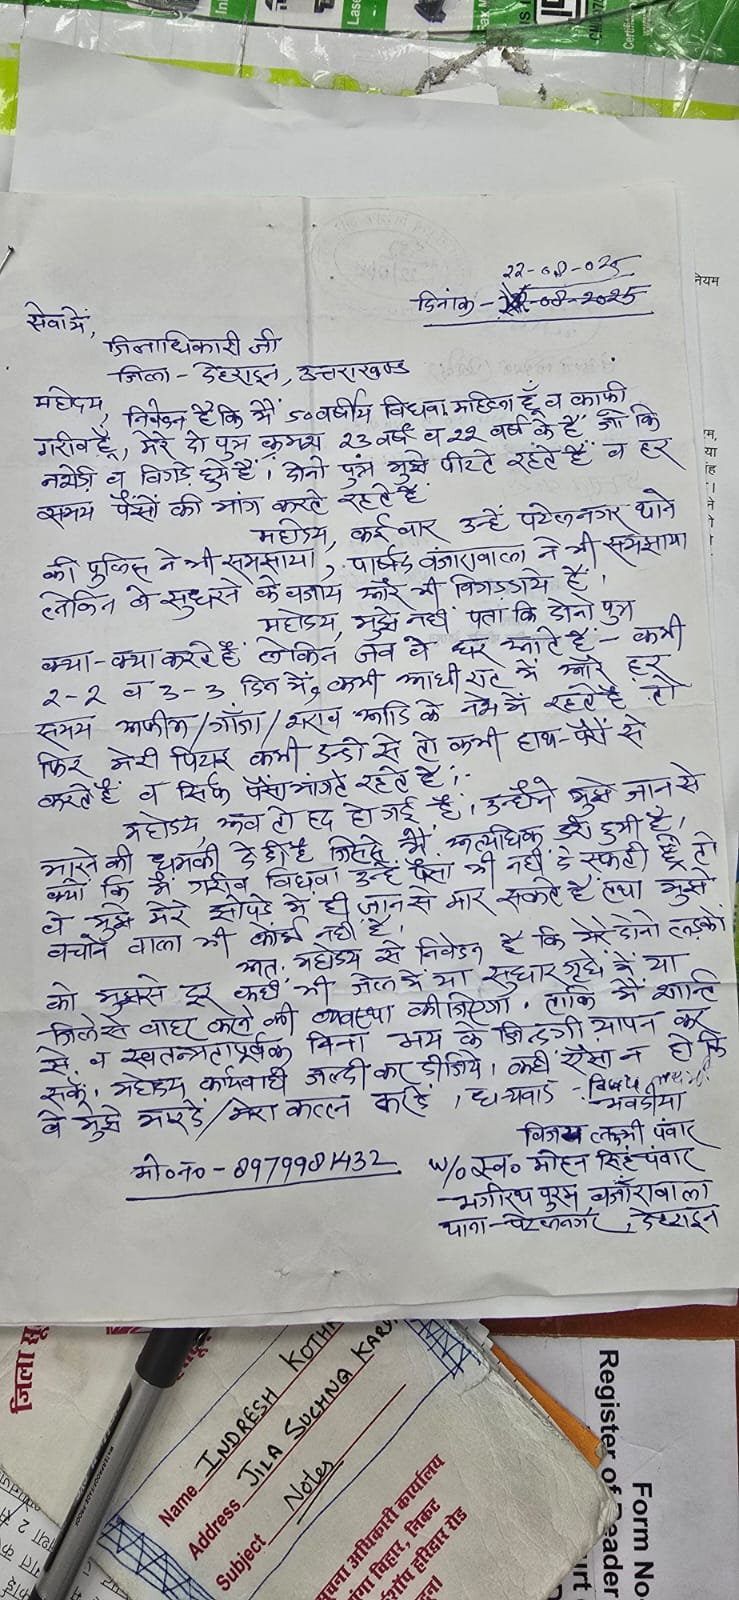 22-08-025
दिनांक - 22-08-2025
सेवा में,
जिलाधिकारी जी
जिला - देहरादून, उत्तराखण्ड
महोदय, निवेदन है कि मैं 50 वर्षीय विधवा महिला हूँ व काफी
गरीब हूँ, मेरे दो पुत्र क्रमश 23 वर्ष व 22 वर्ष के हैं जो कि
नशेड़ी व बिगडे हुये हैं। दोनो पुत्र मुझे पीटते रहते हैं व हर
समय पैसों की मांग करते रहते हैं
महोदय, कई बार उन्हें पटेलनगर थाने
की पुलिस ने भी समझाया, पार्षद बंजारावाला ने भी समझाया
लेकिन वे सुधरने के बजाय और भी बिगड गये हैं।
महोदय, मुझे नहीं पता कि दोनो पुत्र
क्या-क्या करते हैं लेकिन जब वे घर आते हैं - कभी
2-2 व 3-3 दिन में, कभी आधी रात में और हर
समय अफीम/गाँजा/शराब आदि के नशे में रहते हैं तो
फिर मेरी पिटाई कभी डन्डों से तो कभी हाथ-पैरों से
करते हैं व सिर्फ पैसा मांगते रहते हैं।
महोदय, अब तो हद हो गई है। उन्होंने मुझे जान से
मारने की धमकी दे दी है जिससे मैं अत्यधिक डरी हुयी हूँ।
क्यों कि मैं गरीब विधवा उन्हें पैसा भी नहीं दे सकती हूँ तो
वे मुझे मेरे झोपडे में ही जान से मार सकते हैं तथा मुझे
बचाने वाला भी कोई नहीं है।
अतः महोदय से निवेदन है कि मेरे दोनो लडकों
को मुझसे दूर कहीं भी जेल में या सुधार गृह में या
जिले से बाहर करने की व्यवस्था कीजिएगा। ताकि मैं शान्ति
से व स्वतन्त्रतापूर्वक बिना भय के जिन्दगी यापन कर
सकूं। महोदय कार्यवाही जल्दी कर दीजिये। कहीं ऐसा न हो कि
वे मुझे मार दें/मेरा कत्ल कर दें। धन्यवाद -
भवदीया
विजय लक्ष्मी पंवार
मो०न० - 8979981432
W/o स्व० मोहन सिंह पंवार
भगीरथ पुरम बंजारावाला
थाना - पटेलनगर, देहरादून
Name INDRESH KOTH
Address JILA SUCHNA KAR
Subject Notes
Form No
Register of Reader